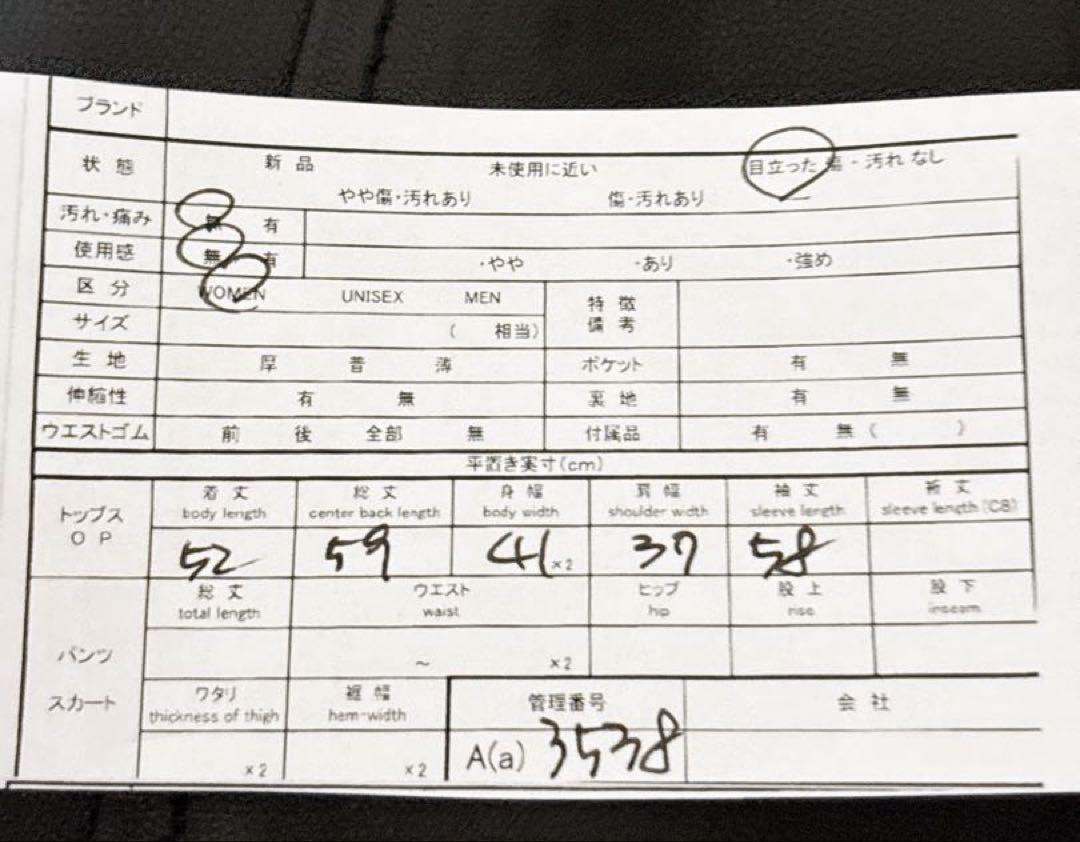 ブランド
状態 新品 未使用に近い 目立った 傷・汚れ なし
やや傷・汚れあり 傷・汚れあり
汚れ・痛み 無 有
使用感 無 有 ・やや ・あり ・強め
区分 WOMEN UNISEX MEN 特徴
備考
サイズ ( 相当)
生地 厚 普 薄 ポケット 有 無
伸縮性 有 無 裏地 有 無
ウエストゴム 前 後 全部 無 付属品 有 無 ( )
平置き実寸(cm)
トップス
OP
着丈 総丈 身幅 肩幅 袖丈 裄丈
body length center back length body width shoulder width sleeve length sleeve length (CB)
52 59 41 ×2 37 58
総丈 ウエスト ヒップ 股上 股下
total length waist hip rise inseam
パンツ ~ ×2
スカート
ワタリ 裾幅 管理番号 会社
thickness of thigh hem-width
×2 ×2 A(a) 3538